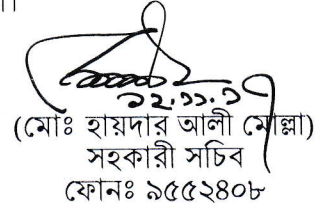 ১২.১১.১
(মোঃ হায়দার আলী মোল্লা)
সহকারী সচিব
ফোনঃ ৯৫৫২৪০৮